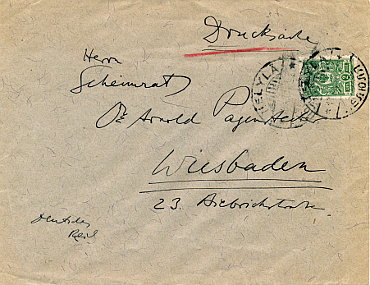 Drucksache
Herrn
Geheimrat
Dr Arnold Pagenstecher
Wiesbaden
23. Biebricherstrasse
Deutsches
Reich